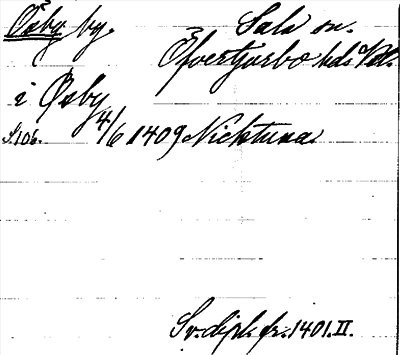 Ösby by. Sala sn.
Öfvertjurbo hds Vtl.
i Øsby
S. 106. 4/6 1409 Nichtuna
Sv. dipl. fr. 1401. II.